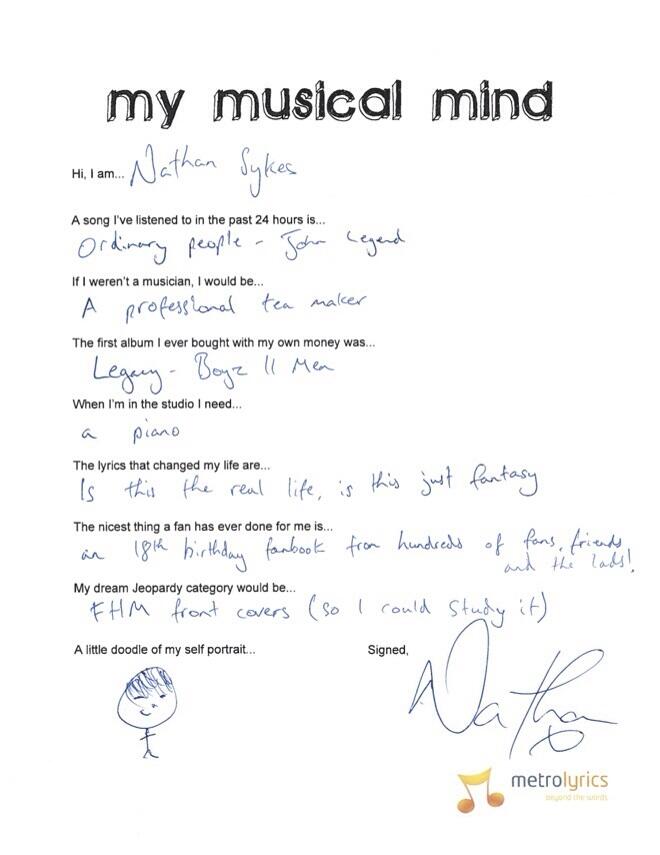 my musical mind
Hi, I am... Nathan Sykes
A song I've listened to in the past 24 hours is...
Ordinary people - John Legend
If I weren't a musician, I would be...
A professional tea maker
The first album I ever bought with my own money was...
Legacy - Boyz II Men
When I'm in the studio I need...
a piano
The lyrics that changed my life are...
Is this the real life, is this just fantasy
The nicest thing a fan has ever done for me is...
an 18th birthday fanbook from hundreds of fans, friends
and the lads!
My dream Jeopardy category would be...
FHM front covers (so I could study it)
A little doodle of my self portrait... Signed,
Nathan
metrolyrics
beyond the words